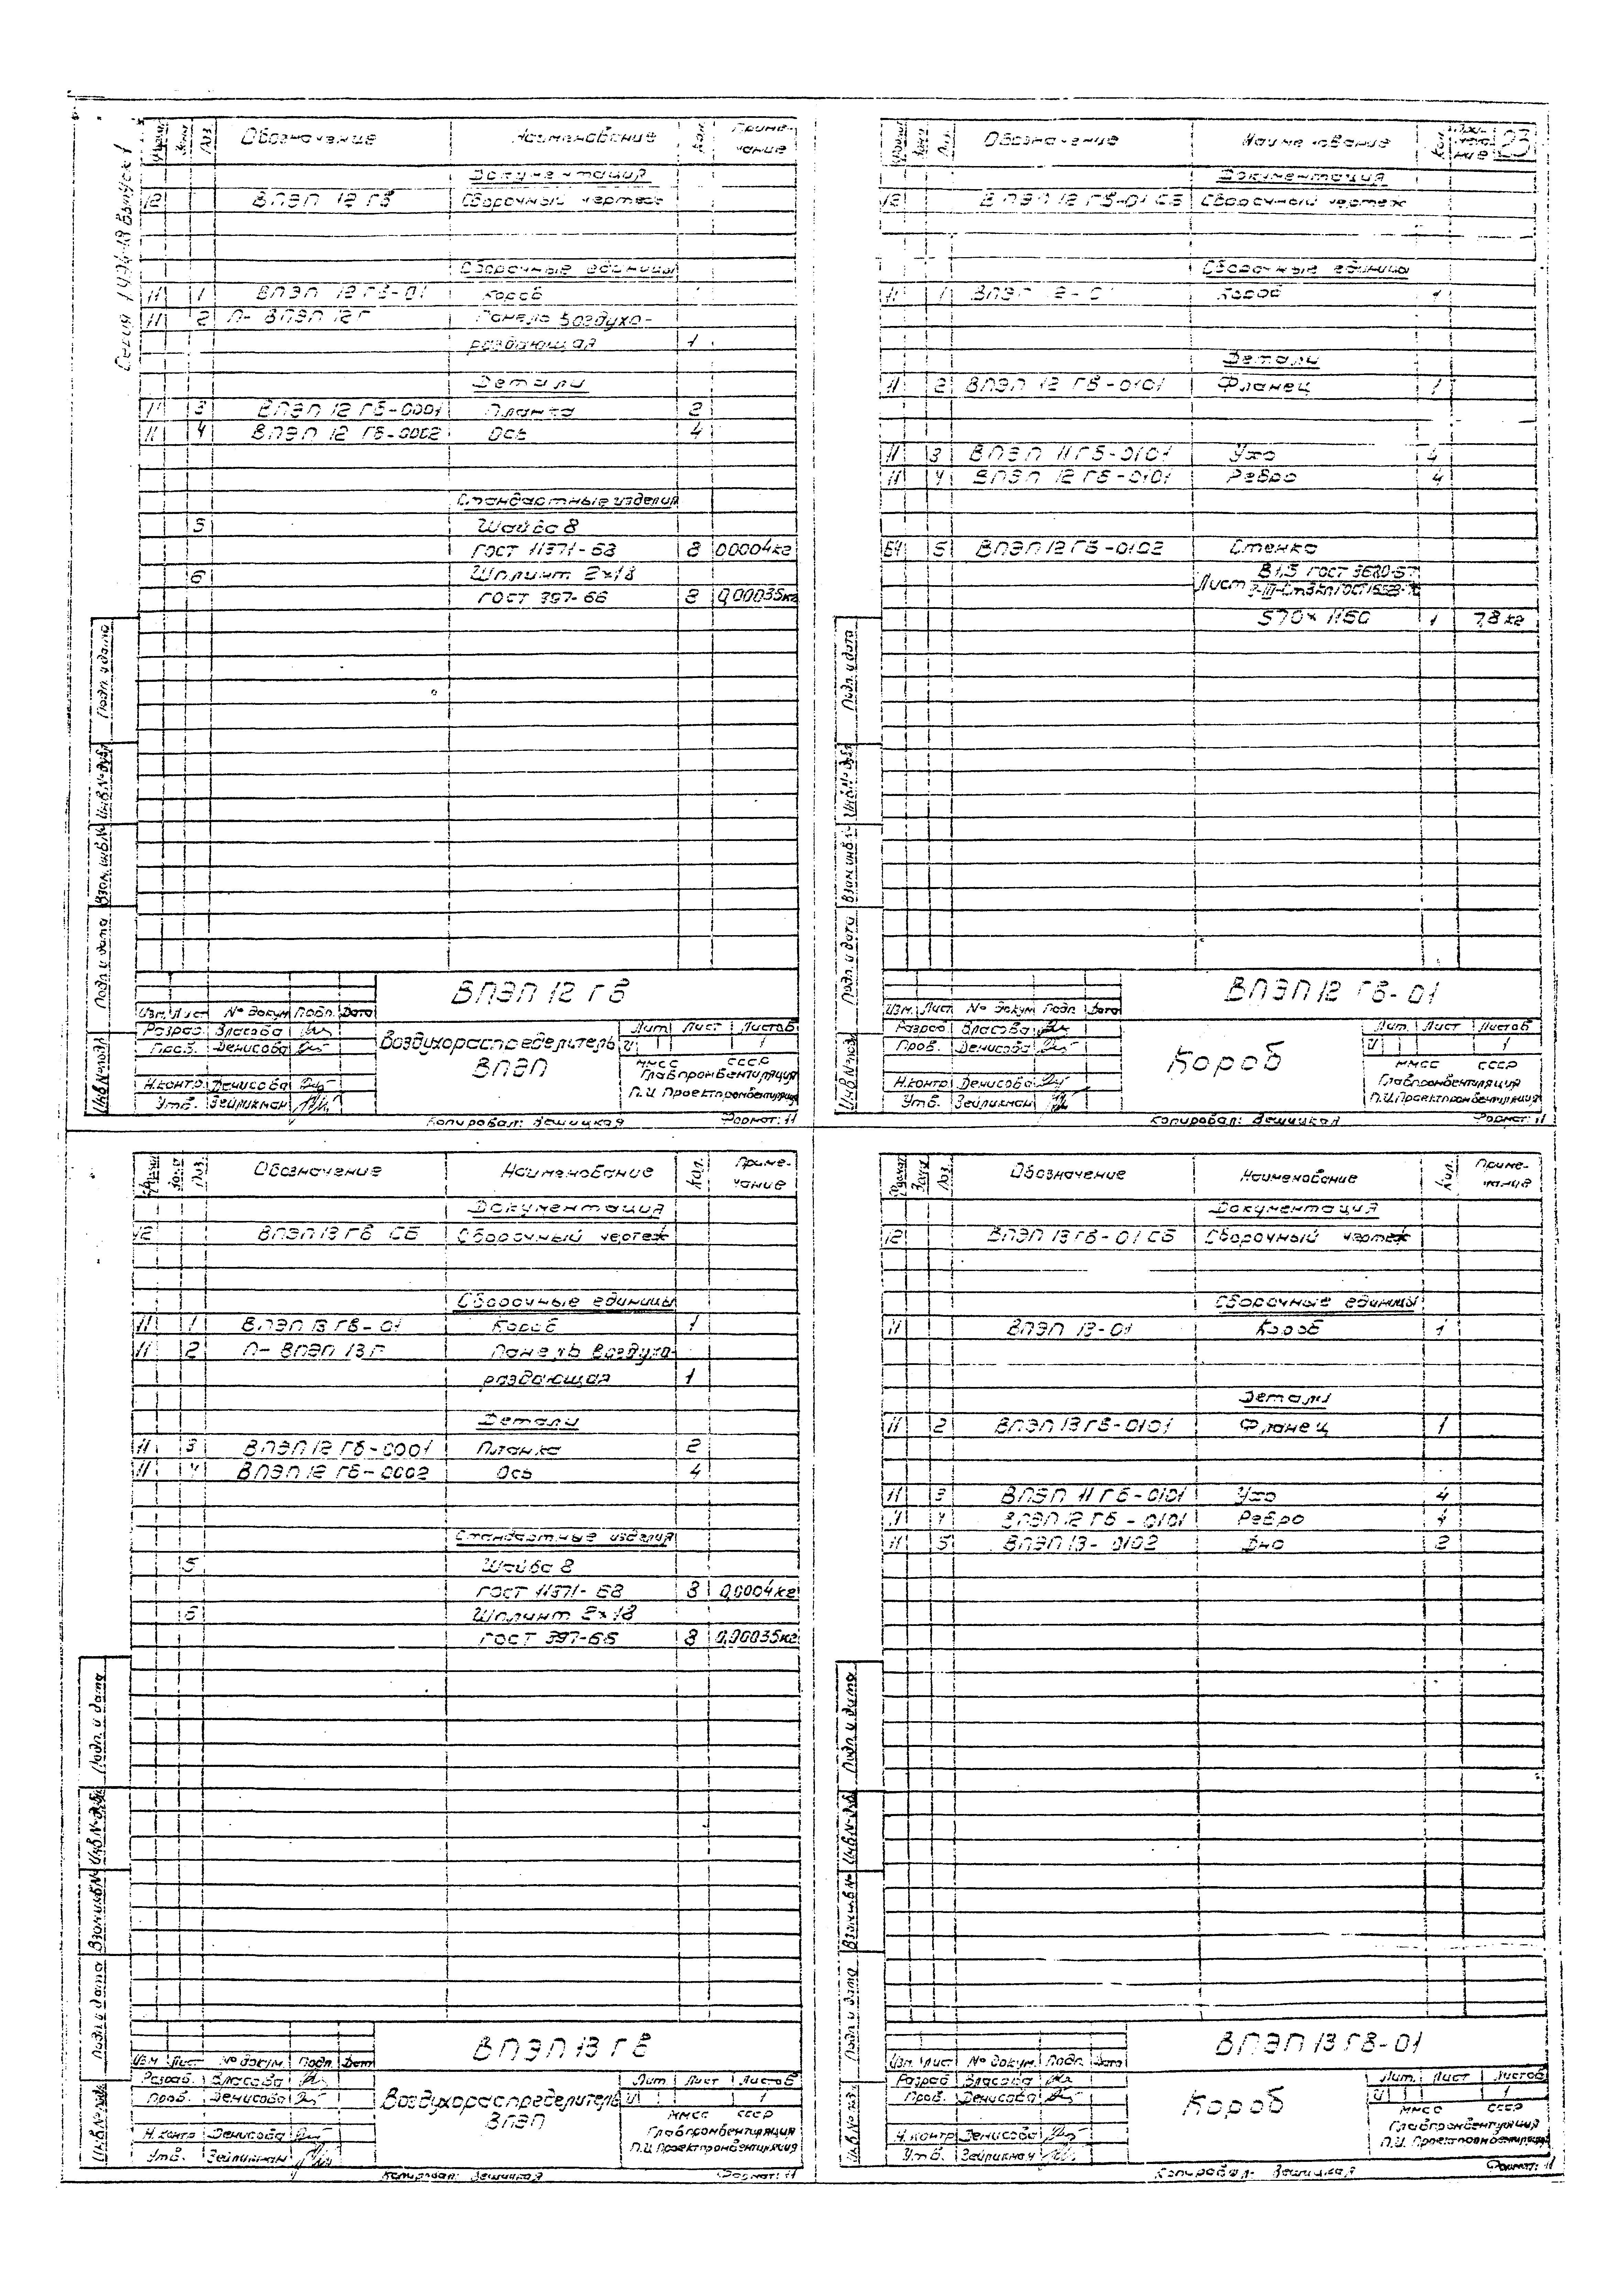 Серия 1.494-18 Выпуск 1
Формат Зона Поз. Обозначение Наименование Кол. Приме-
чание
Документация
12 ВПЭП 12 ГВ Сборочный чертеж
Сборочные единицы
11 1 ВПЭП 12 ГВ-01 Короб
11 2 П- ВПЭП 12 Г Панель воздухо-
раздающая 1
Детали
11 3 ВПЭП 12 ГВ-0001 Планка 2
11 4 ВПЭП 12 ГВ-0002 Ось 4
Стандартные изделия
5 Шайба 8
ГОСТ 11371-68 8 0,0004кг
6 Шплинт 2×18
ГОСТ 397-66 8 0,00035кг
Подп. и дата
Инв.№ дубл
Взам. инв.№
Подп. и дата
Инв.№ подл
ВПЭП 12 ГВ
Изм. Лист № докум Подп. Дата
Разраб. Власова
Пров. Денисова
Н.контр. Денисова
Утв. Зейликман
Воздухораспределитель
ВПЭП
Лит. Лист Листов
И 1
ММСС СССР
Главпромвентиляция
П.И. Проектпромвентиляция
Копировал: Вешицкая Формат: 11
Формат Зона Поз. Обозначение Наименование Кол. Приме-
чание 23
Документация
12 ВПЭП 12 ГВ-01 СБ Сборочный чертеж
Сборочные единицы
11 1 ВПЭП 12-01 Короб 1
Детали
11 2 ВПЭП 12 ГВ-0101 Фланец 1
11 3 ВПЭП 11 ГВ-0101 Ухо 4
11 4 ВПЭП 12 ГВ-0101 Ребро 4
БЧ 5 ВПЭП 12 ГВ-0102 Стенка
Лист В 1,5 ГОСТ 3680-57
570×1150 1 7,8 кг
Подп. и дата
Инв.№ дубл
Взам. инв.№
Подп. и дата
Инв.№ подл
ВПЭП 12 ГВ-01
Изм. Лист № докум Подп Дата
Разраб Власова
Пров. Денисова
Н.контр Денисова
Утв. Зейликман
Короб
Лит. Лист Листов
И 1
ММСС СССР
Главпромвентиляция
П.И. Проектпромвентиляция
Копировал: Вешицкая Формат: 11
Формат Зона Поз. Обозначение Наименование Кол. Приме-
чание
Документация
12 ВПЭП 13 ГВ СБ Сборочный чертеж
Сборочные единицы
11 1 ВПЭП 13 ГВ-01 Короб 1
11 2 П- ВПЭП 13 Г Панель воздухо-
раздающая 1
Детали
11 3 ВПЭП 12 ГВ-0001 Планка 2
11 4 ВПЭП 12 ГВ-0002 Ось 4
Стандартные изделия
5 Шайба 8
ГОСТ 11371-68 8 0,0004кг
6 Шплинт 2×18
ГОСТ 397-66 8 0,00035кг
Подп. и дата
Инв.№ дубл
Взам. инв.№
Подп. и дата
Инв.№ подл
ВПЭП 13 ГВ
Изм. Лист № докум. Подп. Дата
Разраб. Власова
Пров. Денисова
Н.контр Денисова
Утв. Зейликман
Воздухораспределитель
ВПЭП
Лит Лист Листов
И 1
ММСС СССР
Главпромвентиляция
П.И. Проектпромвентиляция
Копировал: Вешицкая Формат: 11
Формат Зона Поз. Обозначение Наименование Кол. Приме-
чание
Документация
12 ВПЭП 13 ГВ-01 СБ Сборочный чертеж
Сборочные единицы
11 ВПЭП 13-01 Короб 1
Детали
11 2 ВПЭП 13 ГВ-0101 Фланец 1
11 3 ВПЭП 11 ГВ-0101 Ухо 4
11 4 ВПЭП 12 ГВ-0101 Ребро 4
11 5 ВПЭП 13-0102 Дно 2
Подп. и дата
Инв.№ дубл
Взам. инв.№
Подп. и дата
Инв.№ подл
ВПЭП 13 ГВ-01
Изм. Лист № докум. Подп Дата
Разраб Власова
Пров. Денисова
Н.контр Денисова
Утв. Зейликман
Короб
Лит. Лист Листов
И 1
ММСС СССР
Главпромвентиляция
П.И. Проектпромвентиляция
Копировал: Вешицкая Формат: 11